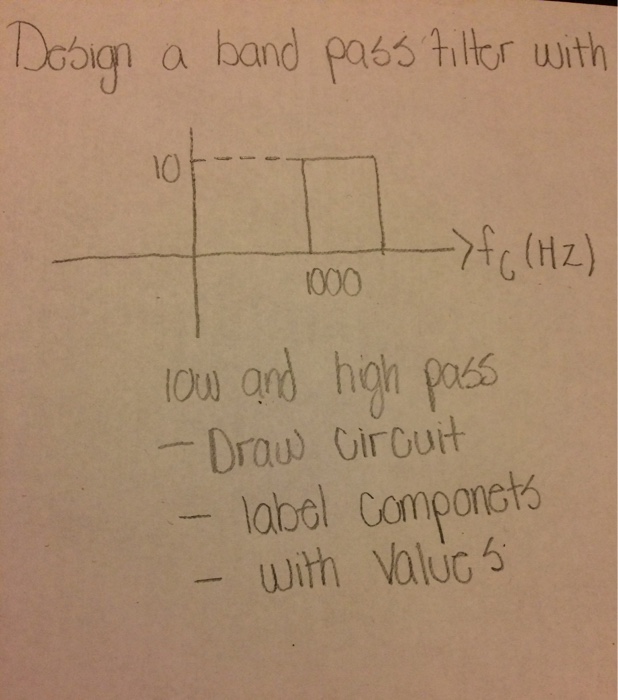 Design a band pass filter with
10
>fc (Hz)
1000
low and high pass
- Draw circuit
- label componets
- with values